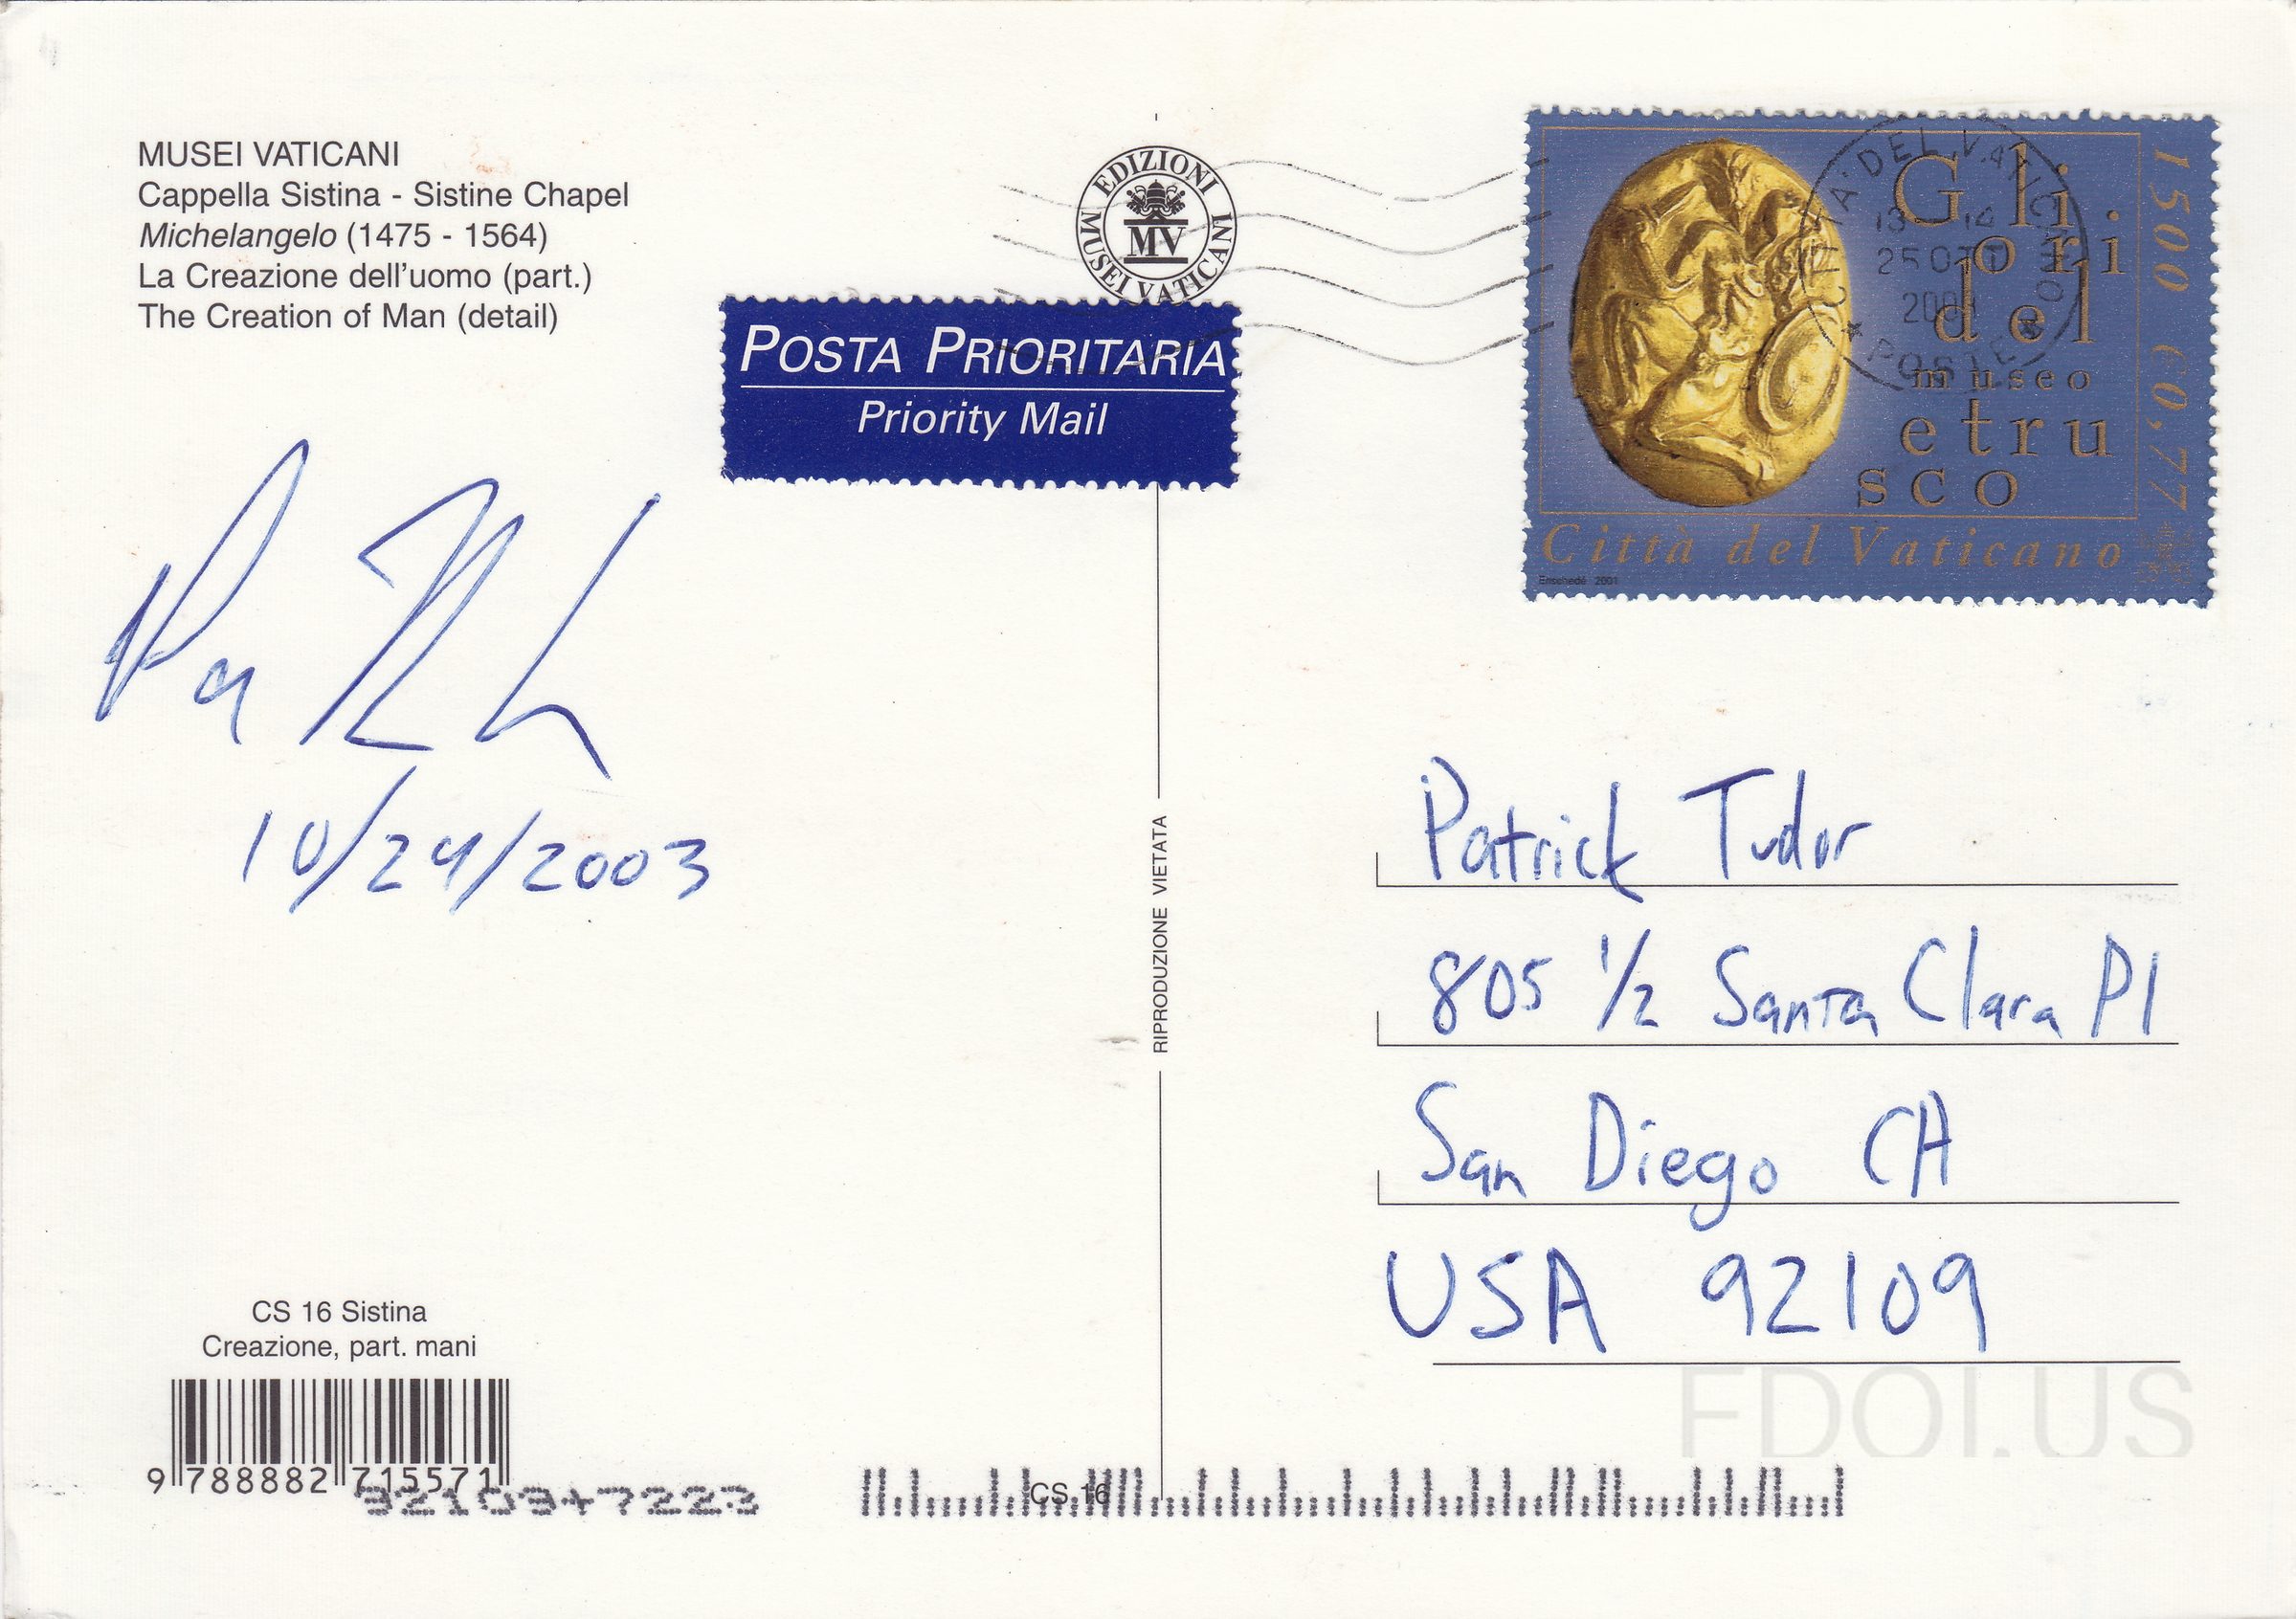 MUSEI VATICANI
Cappella Sistina - Sistine Chapel
Michelangelo (1475 - 1564)
La Creazione dell'uomo (part.)
The Creation of Man (detail)
EDIZIONI MUSEI VATICANI
MV
POSTA PRIORITARIA
Priority Mail
CITTA' DEL VATICANO
POSTE
13 - 14
25 OTT
Gli
ori
del
museo
etru
sco
1500 €0,77
Città del Vaticano
Enschedé 2001
10/24/2003
RIPRODUZIONE VIETATA
Patrick Tudor
805 1/2 Santa Clara Pl
San Diego CA
USA 92109
CS 16 Sistina
Creazione, part. mani
9 788882 715571
92109+7223
CS 16
FDOI.US